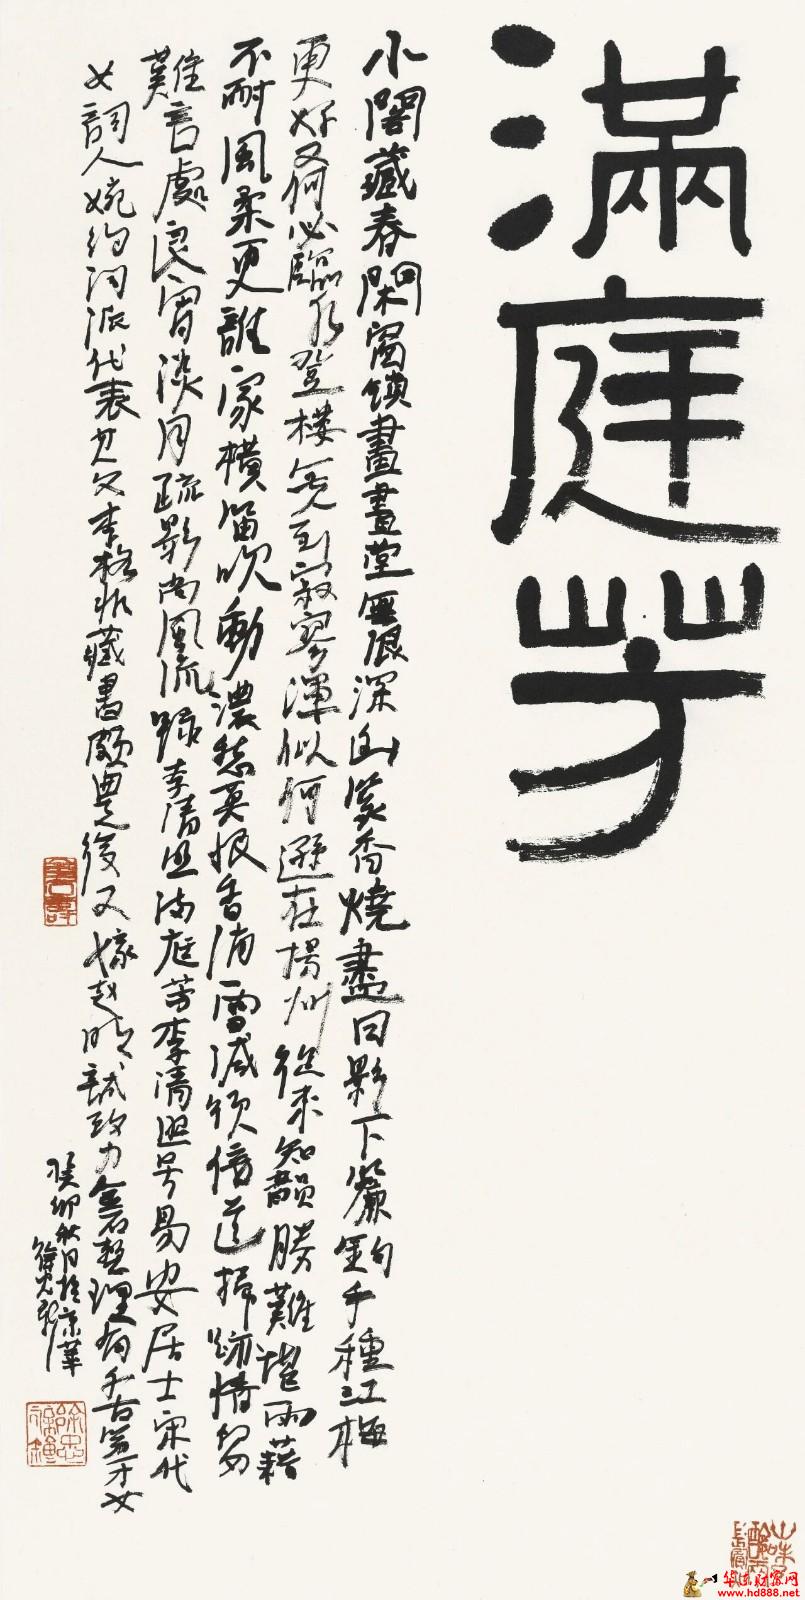 滿庭芳
小閣藏春閑窗鎖晝畫堂無限深幽篆香燒盡日影下簾鉤手種江梅
更好又何必臨水登樓无人到寂寥渾似何遜在揚州從來知韻勝難堪雨藉
不耐風柔更誰家橫笛吹動濃愁莫恨香消雪減須信道掃跡情留
難言處良宵淡月疏影尚風流錄李清照滿庭芳李清照号易安居士宋代
女詞人婉約詞派代表其父李格非藏書頗豐後又嫁趙明誠致力金石整理有千古第一才女
癸卯秋月於京華
徐忠
www.hd888.net